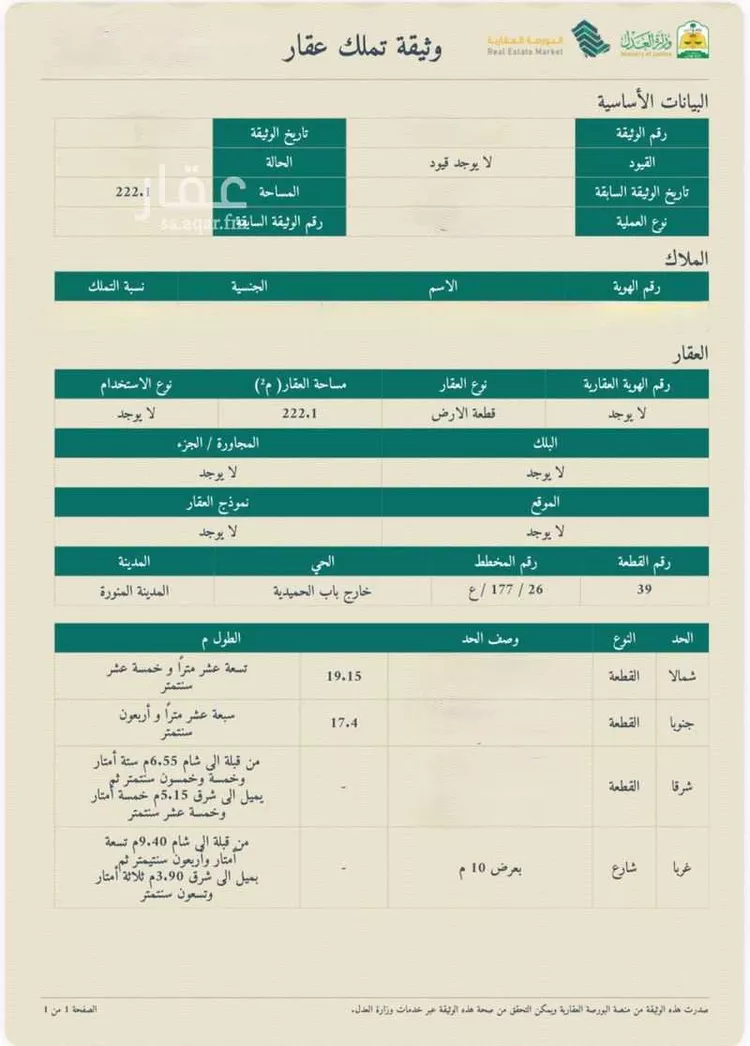 وزارة العدل
Ministry of Justice
البورصة العقارية
Real Estate Market
وثيقة تملك عقار
البيانات الأساسية
رقم الوثيقة تاريخ الوثيقة
القيود لا يوجد قيود الحالة
تاريخ الوثيقة السابقة المساحة 222.1
نوع العملية رقم الوثيقة السابقة
عقار
sa.aqar.fm
الملاك
رقم الهوية الاسم الجنسية نسبة التملك
العقار
رقم الهوية العقارية نوع العقار مساحة العقار( م²) نوع الاستخدام
لا يوجد قطعة الارض 222.1 لا يوجد
البلك المجاورة / الجزء
لا يوجد لا يوجد
الموقع نموذج العقار
لا يوجد لا يوجد
رقم القطعة رقم المخطط الحي المدينة
39 26 / 177 /ع خارج باب الحميدية المدينة المنورة
الحد النوع وصف الحد الطول م
شمالا القطعة 19.15 تسعة عشر متراً و خمسة عشر
سنتمتر
جنوبا القطعة 17.4 سبعة عشر متراً و أربعون
سنتمتر
شرقا القطعة - من قبلة الى شام 6.55م ستة أمتار
وخمسة وخمسون سنتمتر ثم
يميل الى شرق 5.15م خمسة أمتار
وخمسة عشر سنتمتر
غربا شارع بعرض 10 م - من قبلة الى شام 9.40م تسعة
أمتار وأربعون سنتيمتر ثم
يميل الى شرق 3.90م ثلاثة أمتار
وتسعون سنتمتر
صدرت هذه الوثيقة من منصة البورصة العقارية ويمكن التحقق من صحة هذه الوثيقة عبر خدمات وزارة العدل.
الصفحة 1 من 1